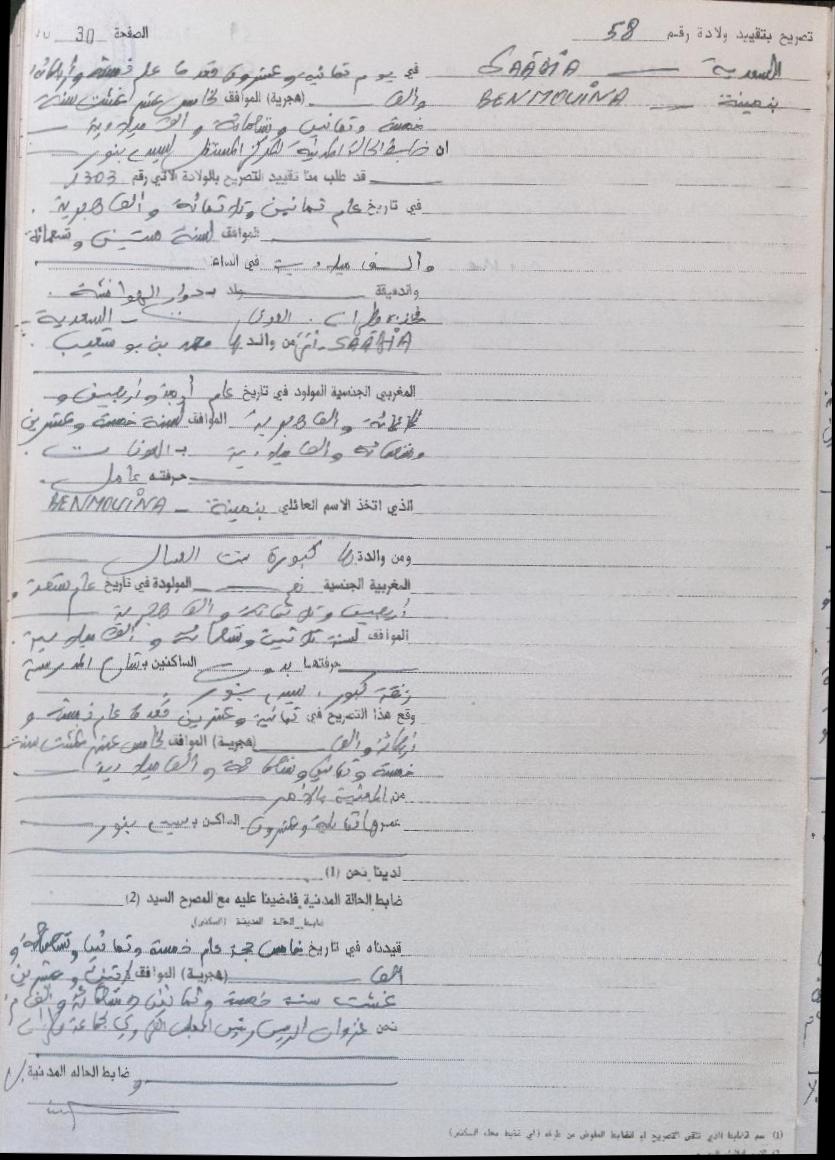 تصريح بتقييد ولادة رقم 58
الصفحة 30
السعدية SAADIA
بنمينة BENMOUINA
في يوم ثمانية وعشرون قعدة عام خمسة وأربعمائة
وألف (هجرية) الموافق لخامس عشر غشت سنة
خمسة وثمانين وتسعمائة وألف ميلادية
ان ضابط الحالة المدنية للمركز المستقل لسيدي بنور
قد طلب منا تقييد التصريح بالولادة الآتي رقم 1303
في تاريخ عام ثمانين وثلاثمائة وألف هجرية .
الموافق لسنة ستين وتسعمائة
وألف ميلادية في الساعة
والدقيقة ولد بدوار
العونات السعدية
SAADIA أنثى من والدها محمد بن بوشعيب
المغربي الجنسية المولود في تاريخ عام أربعة وأربعين و
ثلاثمائة وألف هجرية الموافق لسنة خمسة وعشرين
وتسعمائة وألف ميلادية بالعونات .
حرفته عامل .
الذي اتخذ الاسم العائلي بنمينة - BENMOUINA
ومن والدتها كبورة بنت العسال
المغربية الجنسية نعم المولودة في تاريخ عام تسعة و
أربعين وثلاثمائة وألف هجرية
الموافق لسنة ثلاثين وتسعمائة وألف ميلادية .
حرفتها بدون الساكنين بشارع المدرسة
زنقة سيدي بنور
وقع هذا التصريح في ثمانية وعشرين قعدة عام خمسة و
أربعمائة وألف (هجرية) الموافق لخامس عشر غشت سنة
خمسة وثمانين وتسعمائة وألف ميلادية
من المعنية بالأمر
عمرها وعشرون الساكن بسيدي بنور
لدينا نحن (1)
ضابط الحالة المدنية فامضينا عليه مع المصرح السيد (2)
ضابط الحالة المدنية (السكني)
قيدناه في تاريخ خامس حجة عام خمسة
ألف (هجرية) الموافق لاثنين وعشرين
غشت سنة خمسة وثمانين وتسعمائة وألف م
نحن ادريس رئيس المجلس القروي لجماعة
وضابط الحالة المدنية